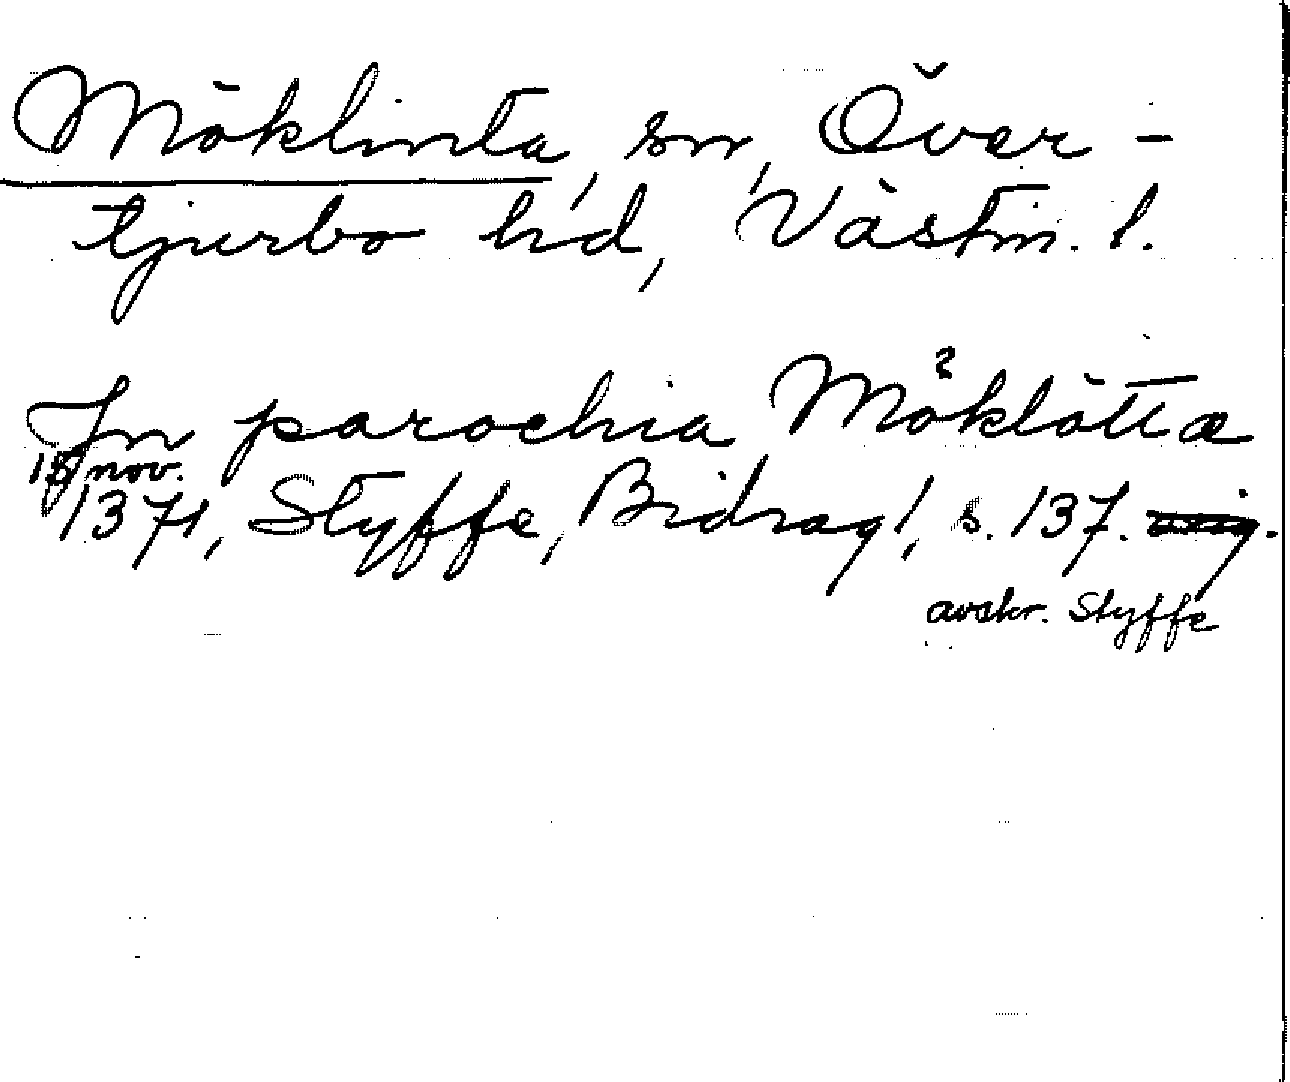 Möklinta, sn, Över-
tjurbo hd, Västm. l.
In parochia Möklötta
nov.
1371, Styffe, Bidrag I, s. 137. orig.
avskr. Styffe